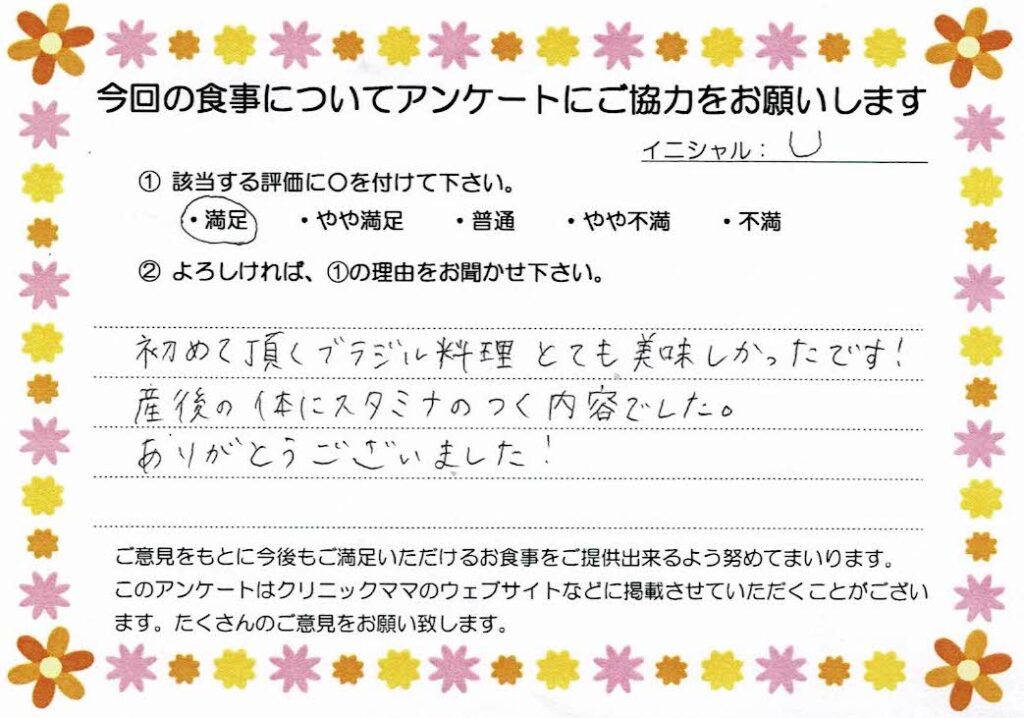 今回の食事についてアンケートにご協力をお願いします
イニシャル： U
① 該当する評価に〇を付けて下さい。
・満足 ・やや満足 ・普通 ・やや不満 ・不満
② よろしければ、①の理由をお聞かせ下さい。
初めて頂くブラジル料理 とても美味しかったです！
産後の体にスタミナのつく内容でした。
ありがとうございました！
ご意見をもとに今後もご満足いただけるお食事をご提供出来るよう努めてまいります。
このアンケートはクリニックママのウェブサイトなどに掲載させていただくことがござい
ます。たくさんのご意見をお願い致します。